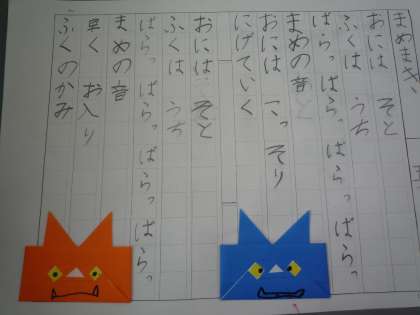 まめまき
おには そと
ふくは うち
ぱらっ ぱらっ ぱらっ ぱらっ
まめの音
おには こっそり
にげていく
おには そと
ふくは うち
ぱらっ ぱらっ ぱらっ ぱらっ
まめの音
早く お入り
ふくのかみ